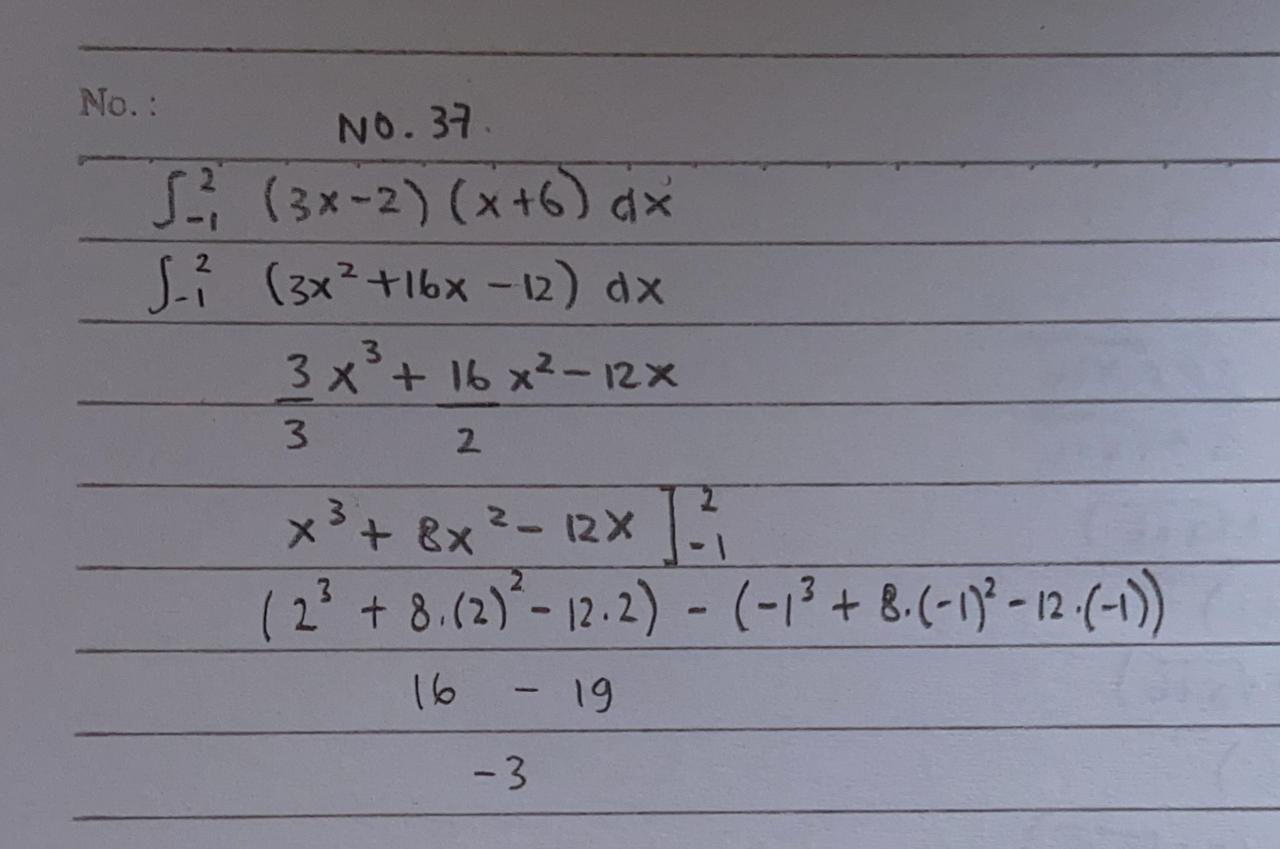 No. :
NO. 37.
∫₋₁² (3x-2) (x+6) dx
∫₋₁² (3x² +16x - 12) dx
3/3 x³ + 16/2 x² - 12x
x³ + 8x² - 12x ]₋₁²
(2³ + 8.(2)² - 12.2) - (-1³ + 8.(-1)² - 12.(-1))
16 - 19
-3